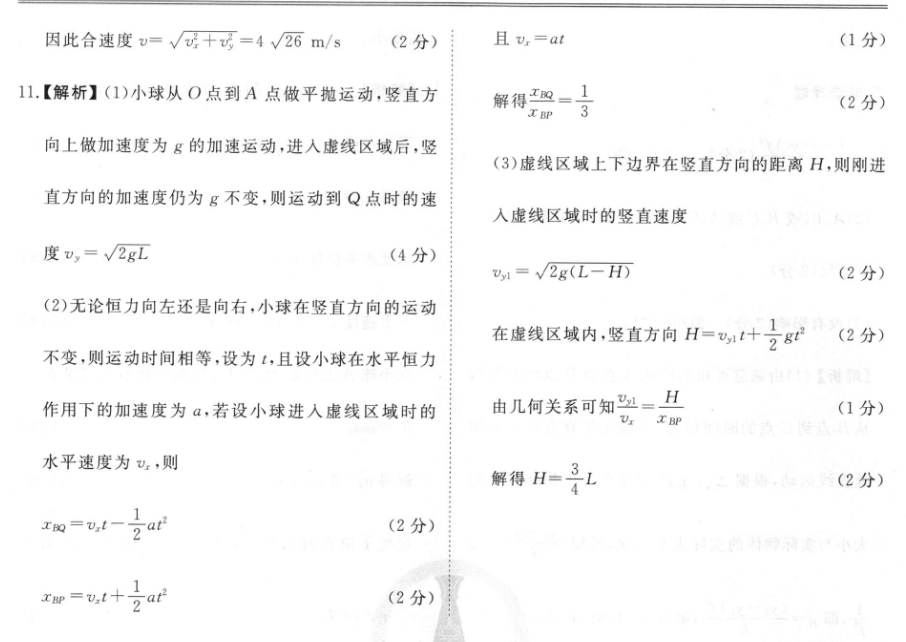 因此合速度 v=√(v_x²+v_y²)=4√26 m/s (2分)
11.【解析】(1)小球从O点到A点做平抛运动,竖直方
向上做加速度为g的加速运动,进入虚线区域后,竖
直方向的加速度仍为g不变,则运动到Q点时的速
度 v_y=√(2gL) (4分)
(2)无论恒力向左还是向右,小球在竖直方向的运动
不变,则运动时间相等,设为t,且设小球在水平恒力
作用下的加速度为a,若设小球进入虚线区域时的
水平速度为v_x,则
x_BQ=v_x t-1/2 at² (2分)
x_BP=v_x t+1/2 at² (2分)
且 v_x=at (1分)
解得 x_BQ/x_BP=1/3 (2分)
(3)虚线区域上下边界在竖直方向的距离H,则刚进
入虚线区域时的竖直速度
v_y1=√(2g(L-H)) (2分)
在虚线区域内,竖直方向 H=v_y1 t+1/2 gt² (2分)
由几何关系可知 v_y1/v_x=H/x_BP (1分)
解得 H=3/4 L (2分)